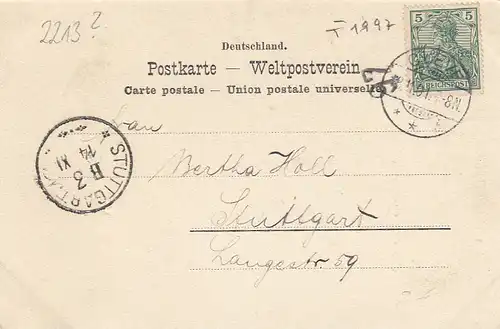 2213 ?
T 1997
5 5
REICHSPOST
Deutschland.
Postkarte — Weltpostverein
Carte postale — Union postale universelle
Bertha Holl
Stuttgart
Langestr 59
STUTTGART
B 3
14 XI